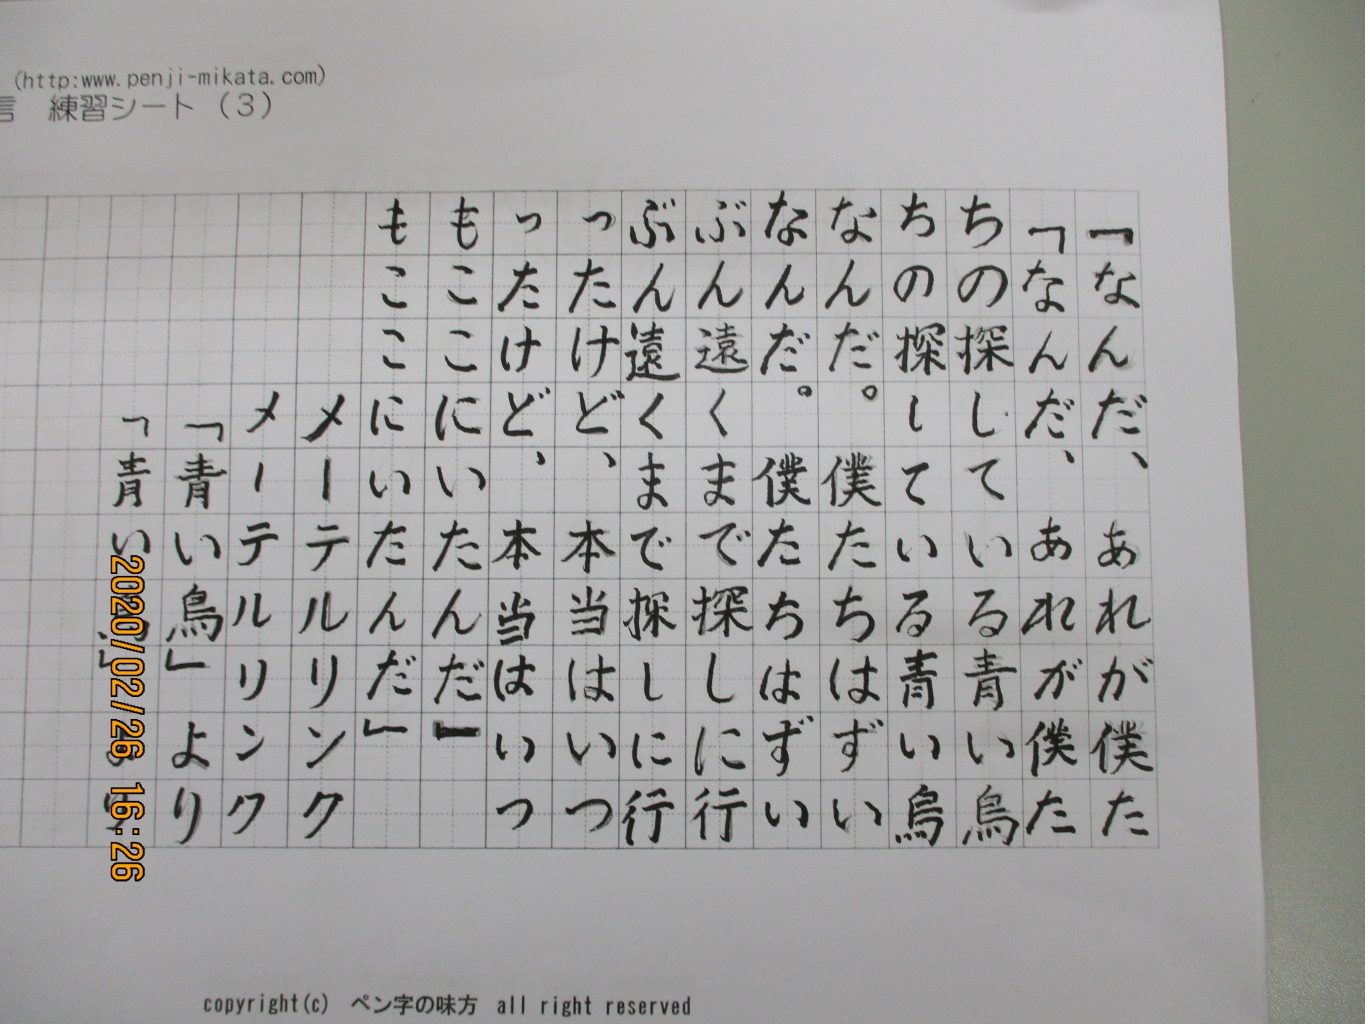 (http:www.penji-mikata.com)
言　練習シート（3）
「なんだ、あれが僕た
「なんだ、あれが僕た
ちの探している青い鳥
ちの探している青い鳥
なんだ。僕たちはずい
なんだ。僕たちはずい
ぶん遠くまで探しに行
ぶん遠くまで探しに行
ったけど、本当はいつ
ったけど、本当はいつ
もここにいたんだ」
もここにいたんだ」
メーテルリンク
メーテルリンク
「青い鳥」より
「青い鳥」より
2020/02/26 16:26
copyright(c)　ペン字の味方　all right reserved